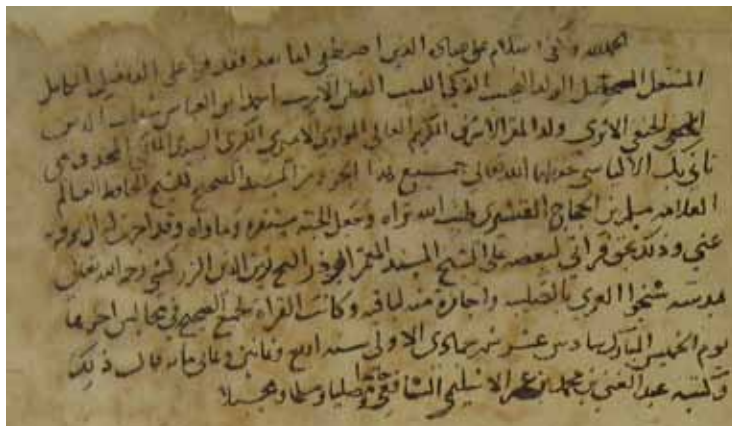 الحمد لله وكفى وسلام على عباده الذين اصطفى اما بعد فقد قرا على الفاضل الكامل
المشتغل المحصل الولد النجيب الذكي اللبيب الفطن الاريب احمد ابو العباس شهاب الدين
الحنفي ولد المقر الاشرفي الكريم العالي المولوي الاميري الكبري السيفي المالكي المخدومي
تاني بك الالياسي الله تعالى جميع هذا الجزء من المسند الصحيح للشيخ الحافظ العالم
العلامة مسلم بن الحجاج القشيري طيب الله ثراه وجعل الجنة مستقره وماواه وقد اجزت له ان يرويه
عني وذلك بحق قراتي لبعضه على الشيخ المسند المعمر ذر الشيخ زين الدين الزركشي رحمه الله تعالى
بمدرسة شيخوا العمري بالصليبة واجازة منه لباقيه وكانت القراة لجميع الصحيح في مجالس اخرها
يوم الخميس المبارك سادس عشر شهر جمادى الاولى سنة اربع وثمانين وثماني مائة قال ذلك
وكتبه عبد الغني بن محمد بن عمر الشافعي حامدا ومصليا ومسلما